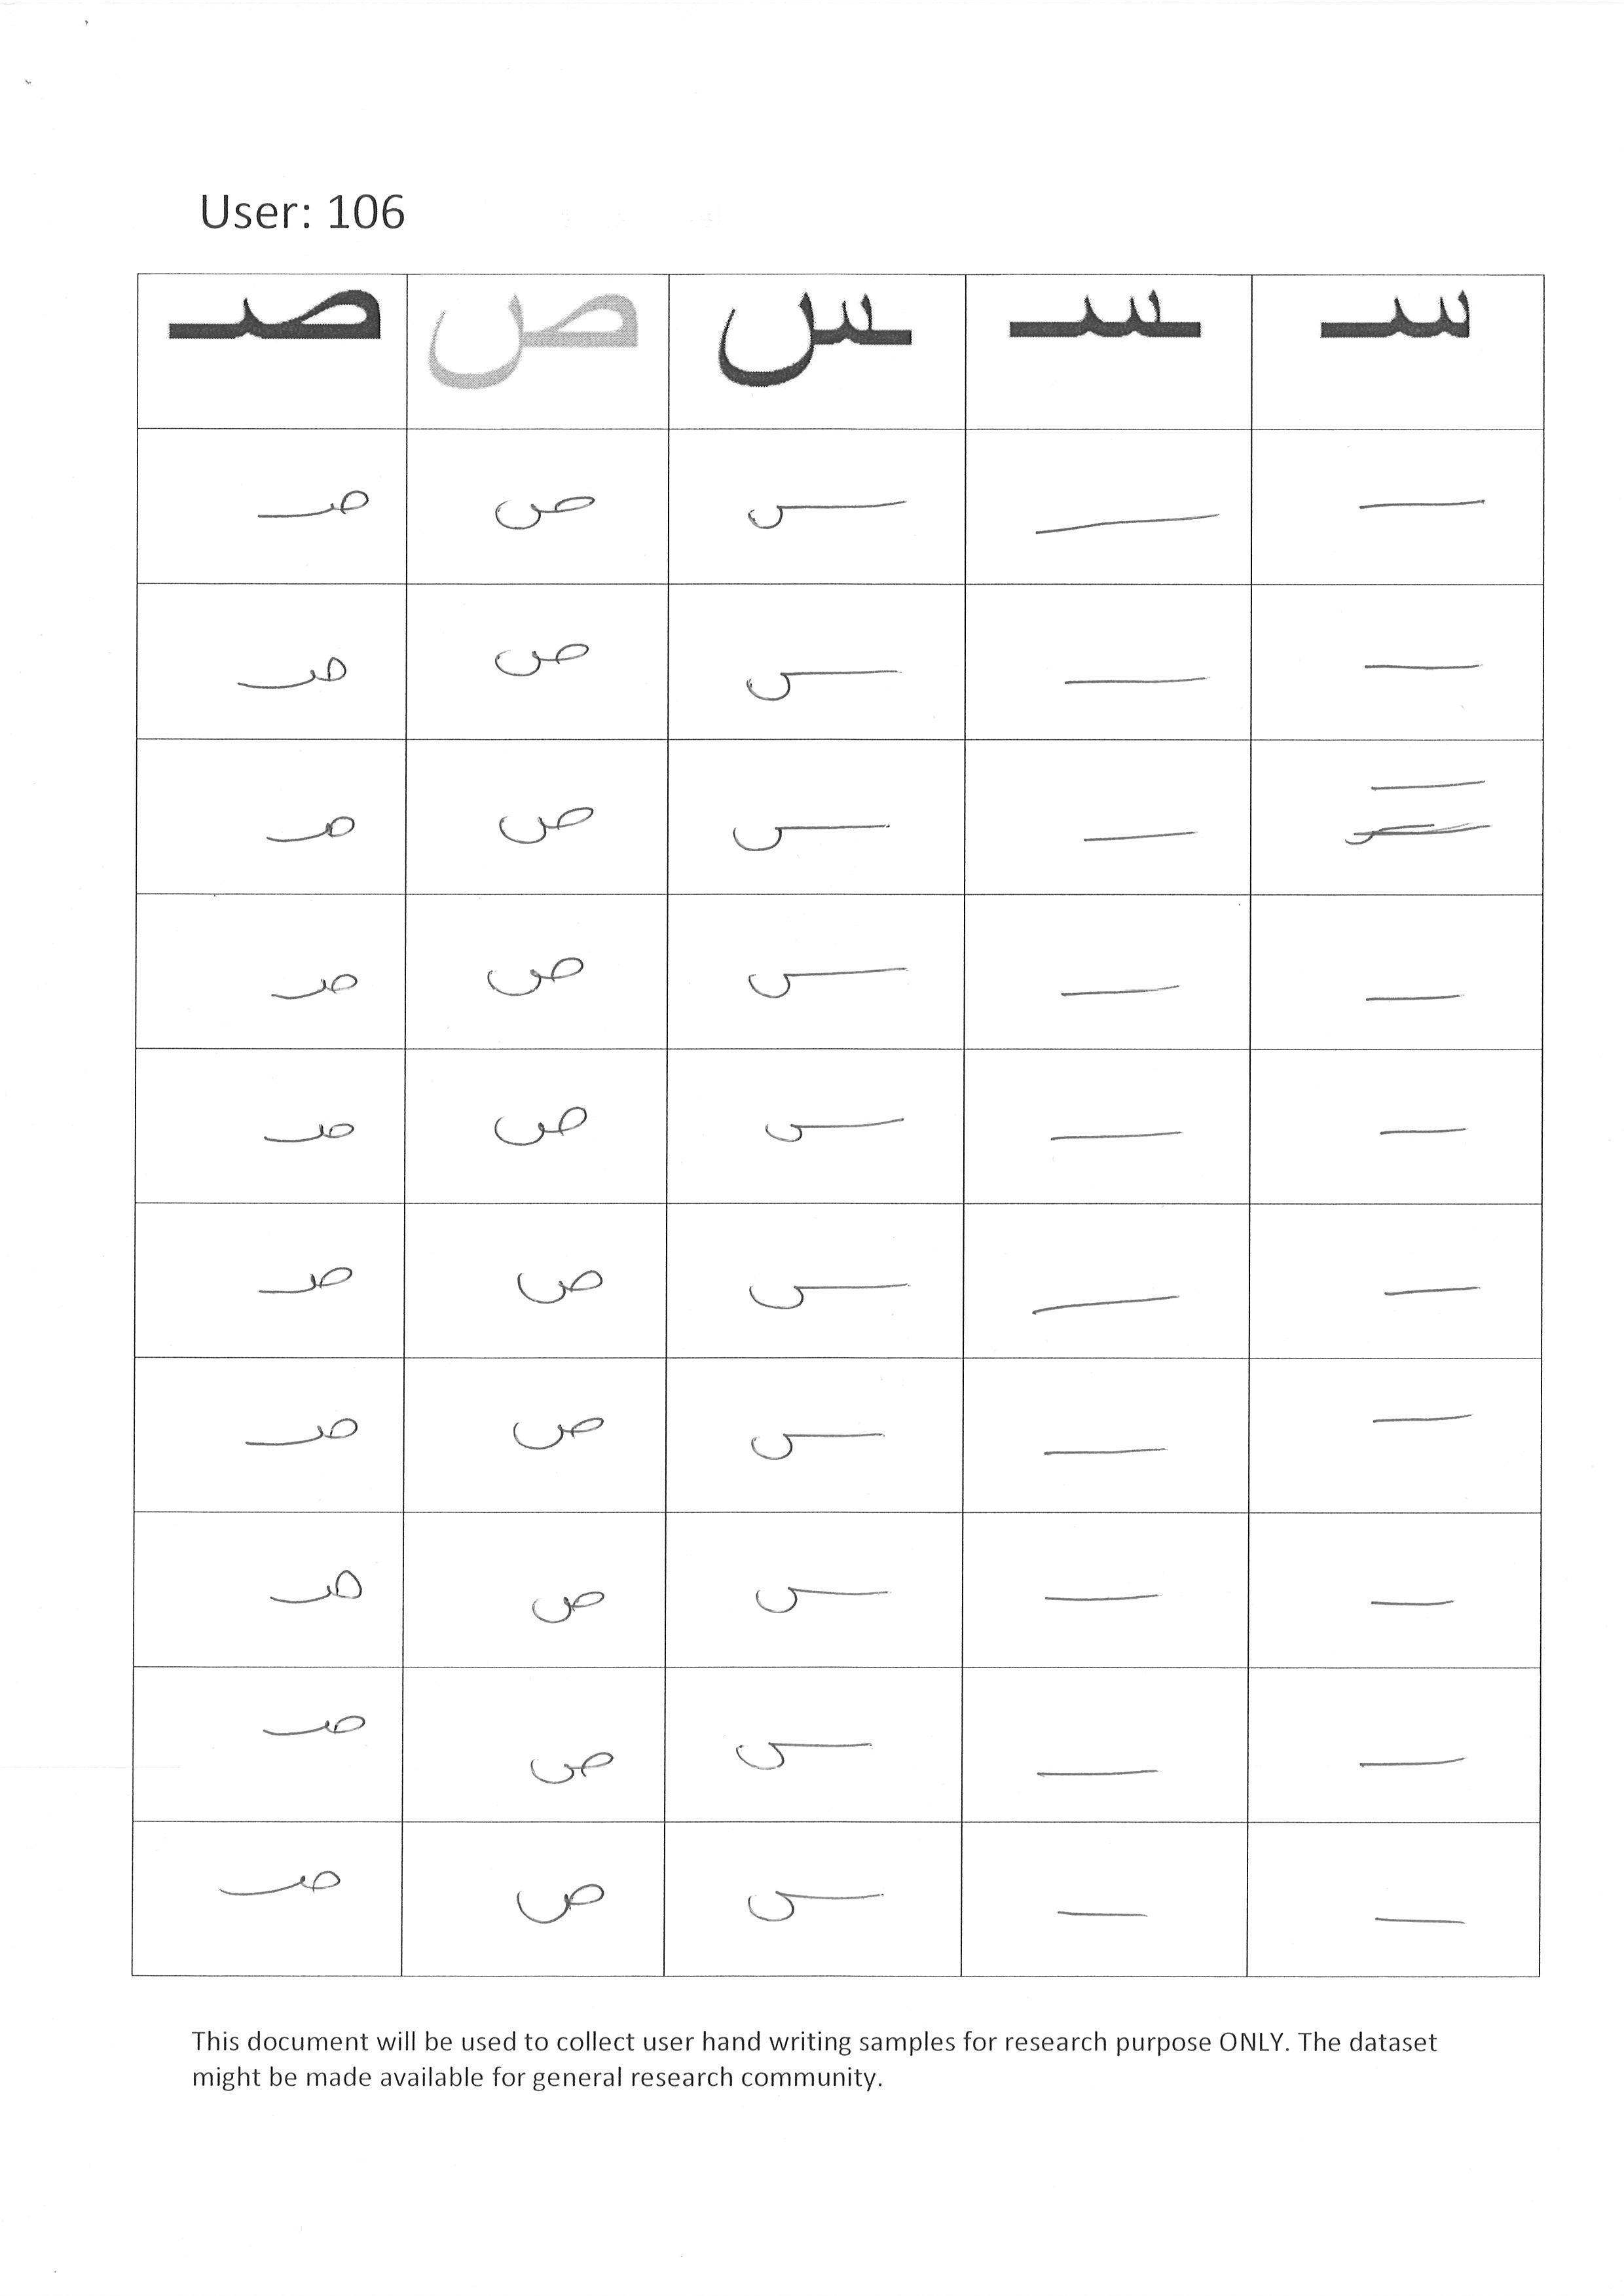 User: 106
سـ ـسـ ـس ص صـ
سـ ـسـ ـس ص صـ
سـ ـسـ ـس ص صـ
سـ ـسـ ـس ص صـ
سـ ـسـ ـس ص صـ
سـ ـسـ ـس ص صـ
سـ ـسـ ـس ص صـ
سـ ـسـ ـس ص صـ
سـ ـسـ ـس ص صـ
سـ ـسـ ـس ص صـ
سـ ـسـ ـس ص صـ
This document will be used to collect user hand writing samples for research purpose ONLY. The dataset
might be made available for general research community.